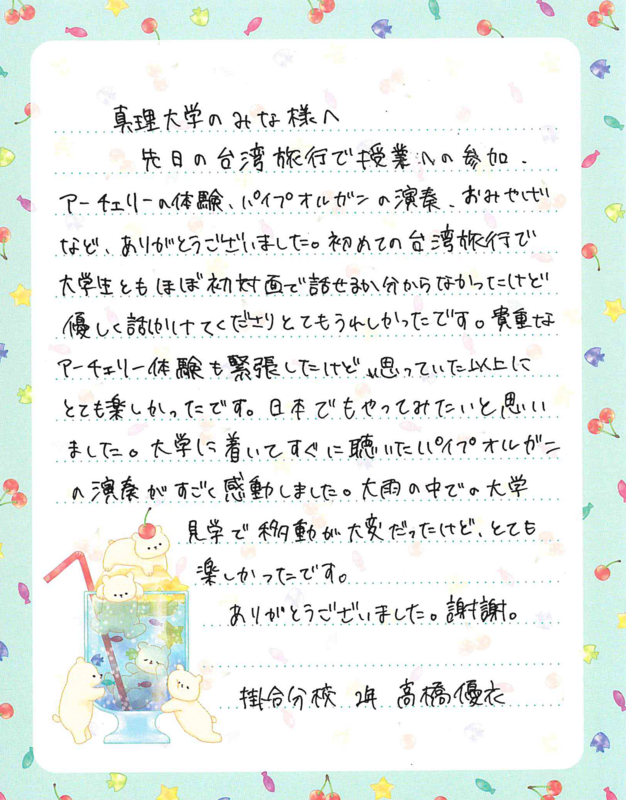 真理大学のみな様へ
先日の台湾旅行で授業への参加、
アーチェリーの体験、パイプオルガンの演奏、おみやげ
など、ありがとうございました。初めての台湾旅行で
大学生ともほぼ初対面で話せるか分からなかったけど
優しく話かけてくださりとてもうれしかったです。貴重な
アーチェリー体験も緊張したけど思っていた以上に
とても楽しかったです。日本でもやってみたいと思い
ました。大学に着いてすぐに聴いたパイプオルガン
の演奏がすごく感動しました。大雨の中での大学
見学で移動が大変だったけど、とても
楽しかったです。
ありがとうございました。謝謝。
掛合分校 2年 高橋優衣